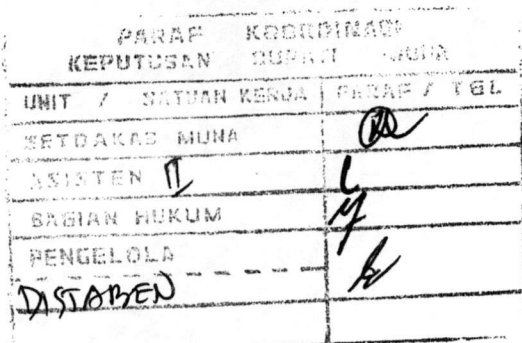 PARAF KOORDINASI
KEPUTUSAN BUPATI MUNA
UNIT / SATUAN KERJA PARAF / TGL
SETDAKAB MUNA
ASISTEN II
BAGIAN HUKUM
PENGELOLA
DISTABEN